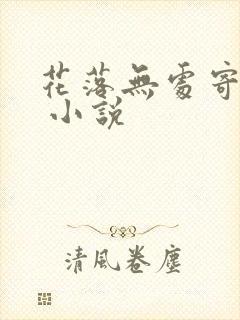 花落無處寄
小說
清風卷塵